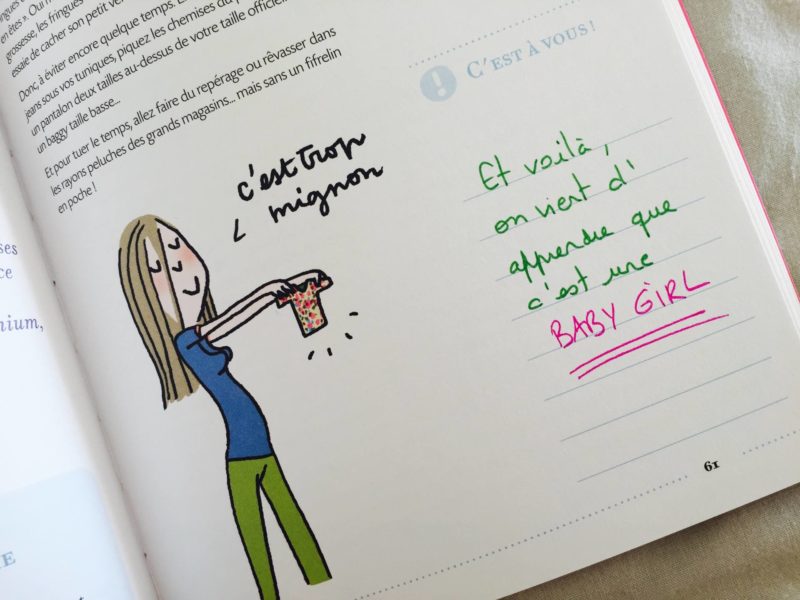 en êtes ».
grossesse, les fringues
essaie de cacher son petit ven
Donc, à éviter encore quelque temps.
jeans sous vos tuniques, piquez les chemises du
un pantalon deux tailles au-dessus de votre taille officiel
un baggy taille basse...
Et pour tuer le temps, allez faire du repérage ou rêvasser dans
les rayons peluches des grands magasins... mais sans un fifrelin
en poche !
c'est trop
mignon
C'EST À VOUS !
Et voilà,
on vient d'
apprendre que
c'est une
BABY GIRL
61
ses
ce
nium,
RE